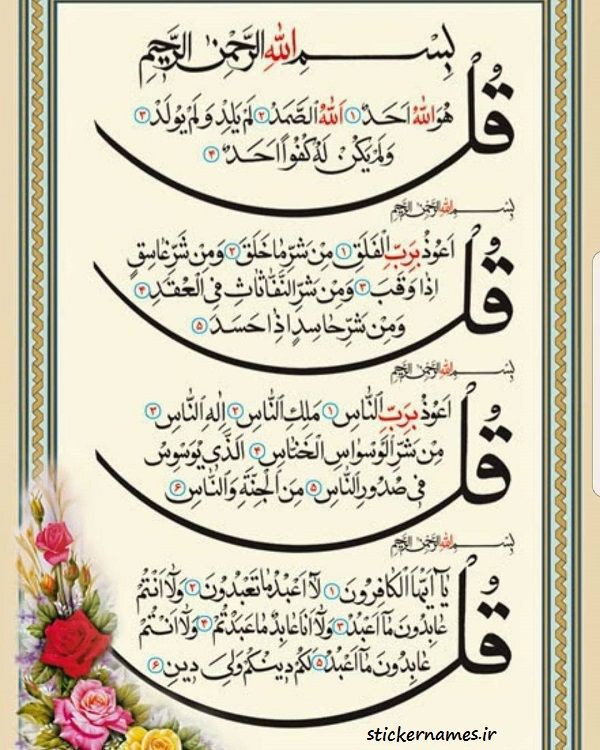 بِسْمِ اللهِ الرَّحْمٰنِ الرَّحِیمِ
قُل
هُوَ اللهُ اَحَدٌ ۱ اَللهُ الصَّمَدُ ۲ لَمْ یَلِدْ وَلَمْ یُولَدْ ۳
وَلَمْ یَکُنْ لَهُ کُفُوًا اَحَدٌ ۴
بِسْمِ اللهِ الرَّحْمٰنِ الرَّحِیمِ
قُل
اَعُوذُ بِرَبِّ الْفَلَقِ ۱ مِنْ شَرِّ مَا خَلَقَ ۲ وَمِنْ شَرِّ غَاسِقٍ
اِذَا وَقَبَ ۳ وَمِنْ شَرِّ النَّفَّاثَاتِ فِی الْعُقَدِ ۴
وَمِنْ شَرِّ حَاسِدٍ اِذَا حَسَدَ ۵
بِسْمِ اللهِ الرَّحْمٰنِ الرَّحِیمِ
قُل
اَعُوذُ بِرَبِّ النَّاسِ ۱ مَلِکِ النَّاسِ ۲ اِلٰهِ النَّاسِ ۳
مِنْ شَرِّ الْوَسْوَاسِ الْخَنَّاسِ ۴ الَّذِی یُوَسْوِسُ
فِی صُدُورِ النَّاسِ ۵ مِنَ الْجِنَّةِ وَالنَّاسِ ۶
بِسْمِ اللهِ الرَّحْمٰنِ الرَّحِیمِ
قُل
یَآ اَیُّهَا الْکَافِرُونَ ۱ لَآ اَعْبُدُ مَا تَعْبُدُونَ ۲ وَلَآ اَنْتُمْ
عَابِدُونَ مَآ اَعْبُدُ ۳ وَلَآ اَنَا عَابِدٌ مَا عَبَدْتُمْ ۴ وَلَآ اَنْتُمْ
عَابِدُونَ مَآ اَعْبُدُ ۵ لَکُمْ دِینُکُمْ وَلِیَ دِینِ ۶
stickernames.ir